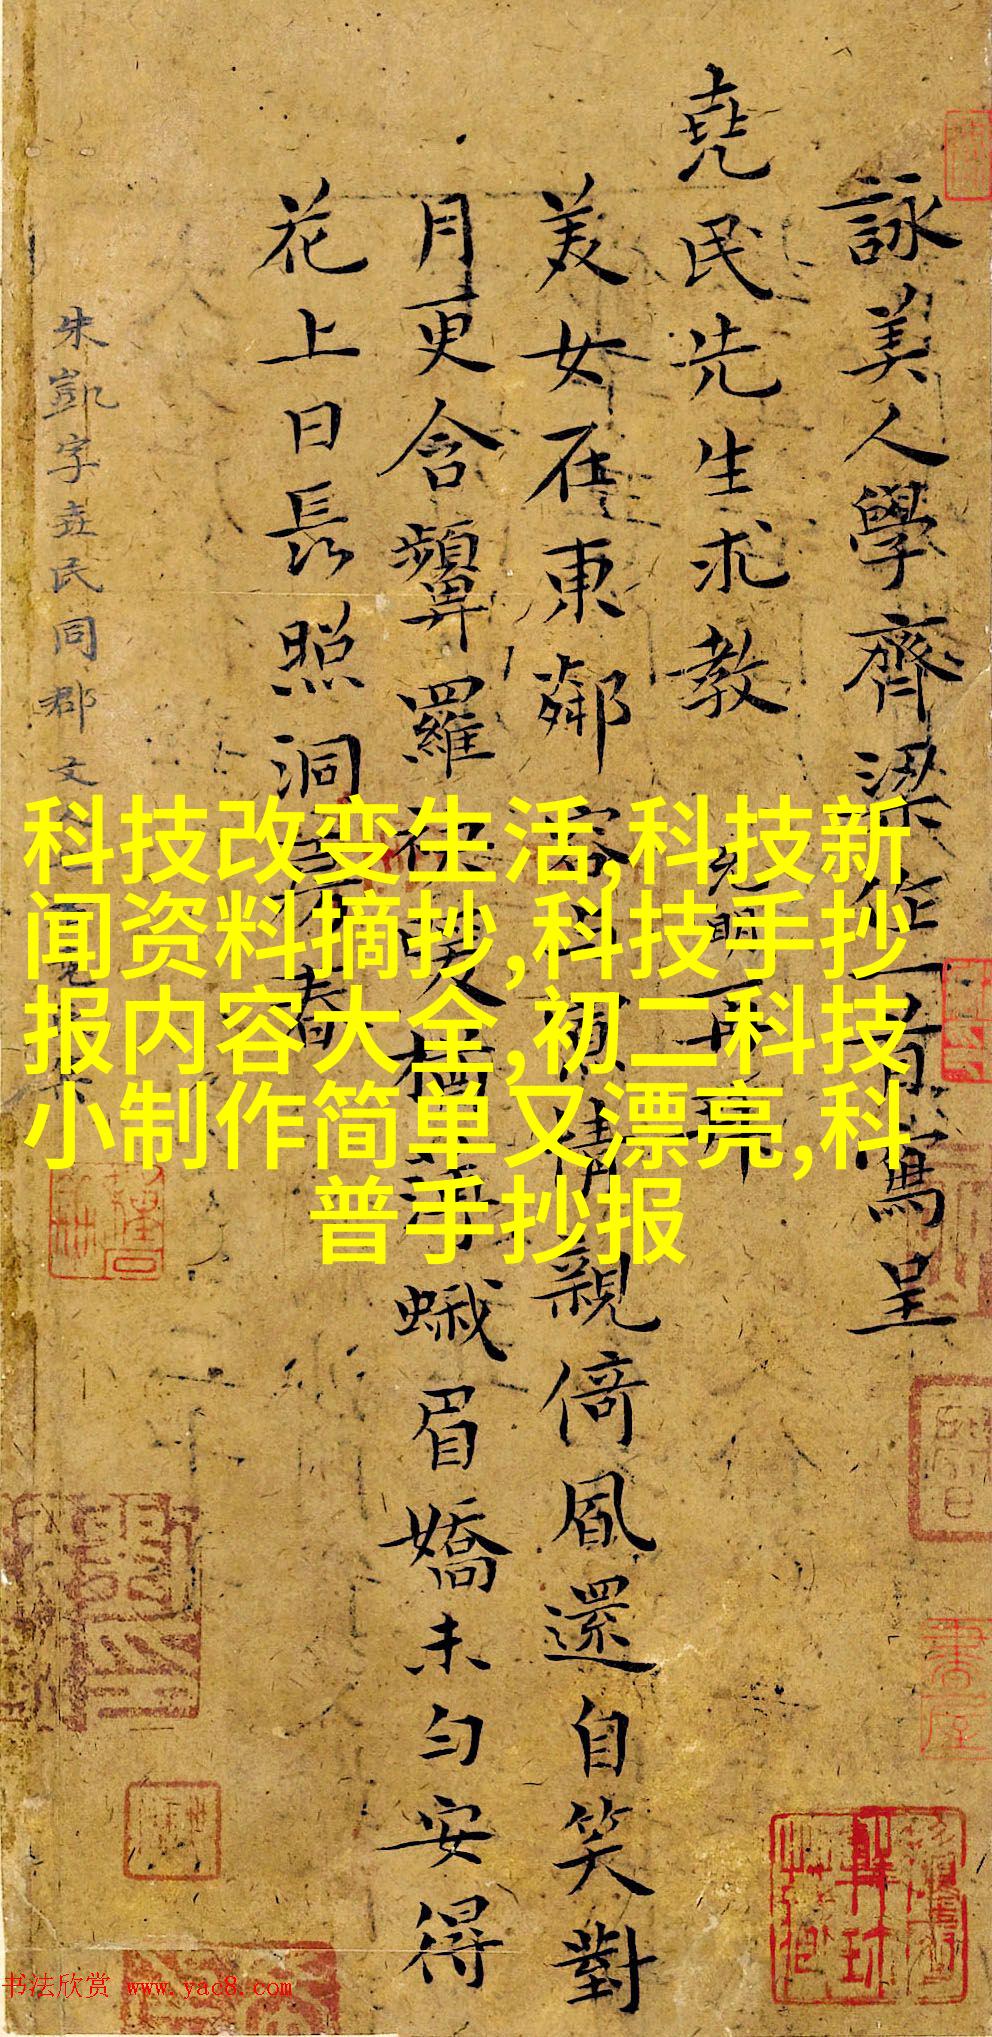 詠美人學齊梁作一首寫呈
堯民先生求教 允明再拜
美女在東鄰 容 情親倚風還自笑對
月更含顰羅 暖 蛾眉嬌未勻安得
花上日長照洞 春
朱凱字堯民同郡文
科技改变生活,科技新
闻资料摘抄,科技手抄
报内容大全,初二科技
小制作简单又漂亮,科
普手抄报
书法欣赏 www.yac8.com